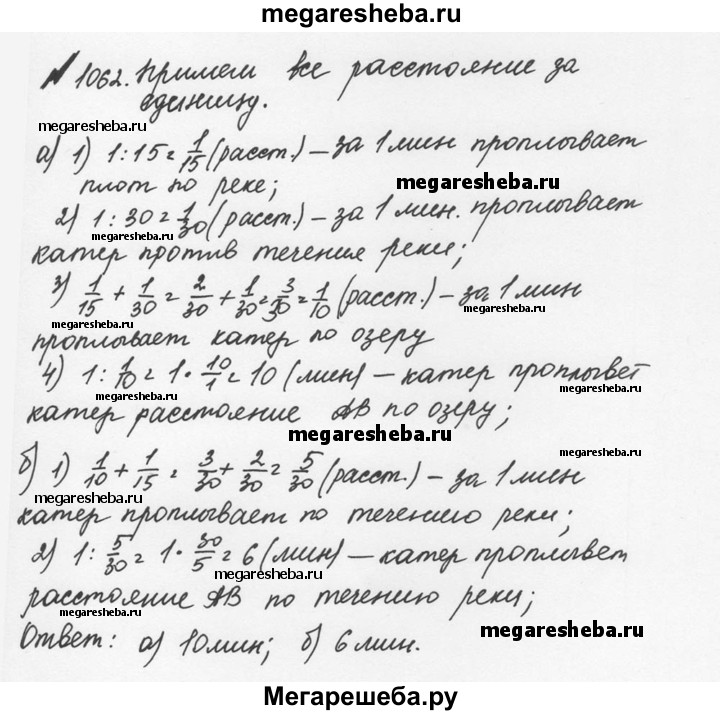 megaresheba.ru
№ 1062. Примем все расстояние за
единицу.
megaresheba.ru
а) 1) 1:15 = 1/15 (расст.) – за 1 мин проплывает
плот по реке;
megaresheba.ru
2) 1:30 = 1/30 (расст.) – за 1 мин. проплывает
megaresheba.ru
катер против течения реки;
3) 1/15 + 1/30 = 2/30 + 1/30 = 3/30 = 1/10 (расст.) – за 1 мин
megaresheba.ru
megaresheba.ru
проплывает катер по озеру
4) 1 : 1/10 = 1 · 10/1 = 10 (мин) – катер проплывет
megaresheba.ru
катер расстояние АВ по озеру;
megaresheba.ru
megaresheba.ru
б) 1) 1/10 + 1/15 = 3/30 + 2/30 = 5/30 (расст.) – за 1 мин
megaresheba.ru
катер проплывает по течению реки;
2) 1 : 5/30 = 1 · 30/5 = 6 (мин) – катер проплывет
megaresheba.ru
расстояние АВ по течению реки;
Ответ: а) 10 мин; б) 6 мин.
megaresheba.ru
Мегарешеба.ру